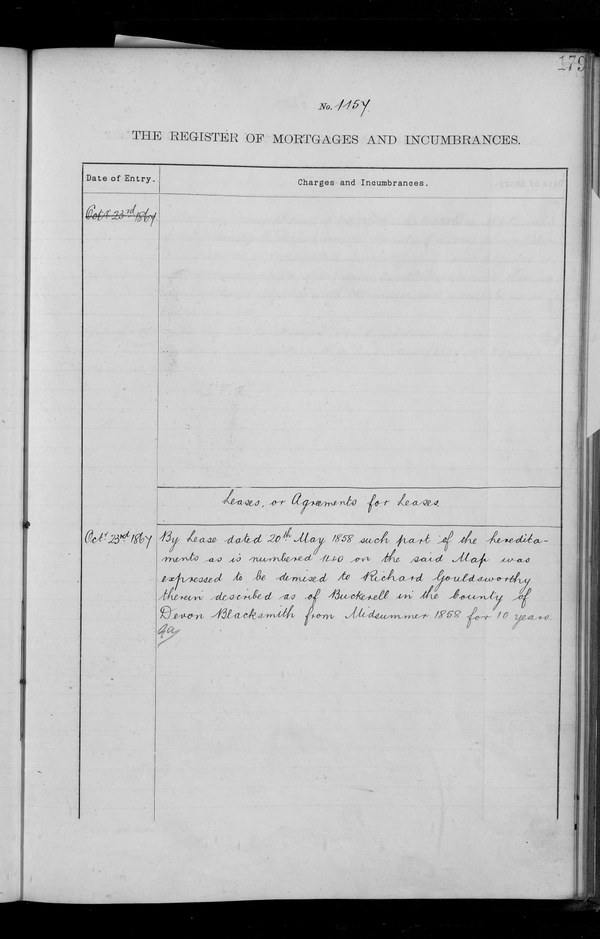 179
No. 1157
THE REGISTER OF MORTGAGES AND INCUMBRANCES.
Date of Entry.
Charges and Incumbrances.
Octr 23rd 1867
Leases, or Agreements for Leases.
Octr 23rd 1867
By Lease dated 20th May 1858 such part of the heredita-
ments as is numbered on the said Map was
expressed to be demised to Richard Gouldsworthy
therein described as of Buckerell in the County of
Devon Blacksmith from Midsummer 1858 for 10 years.